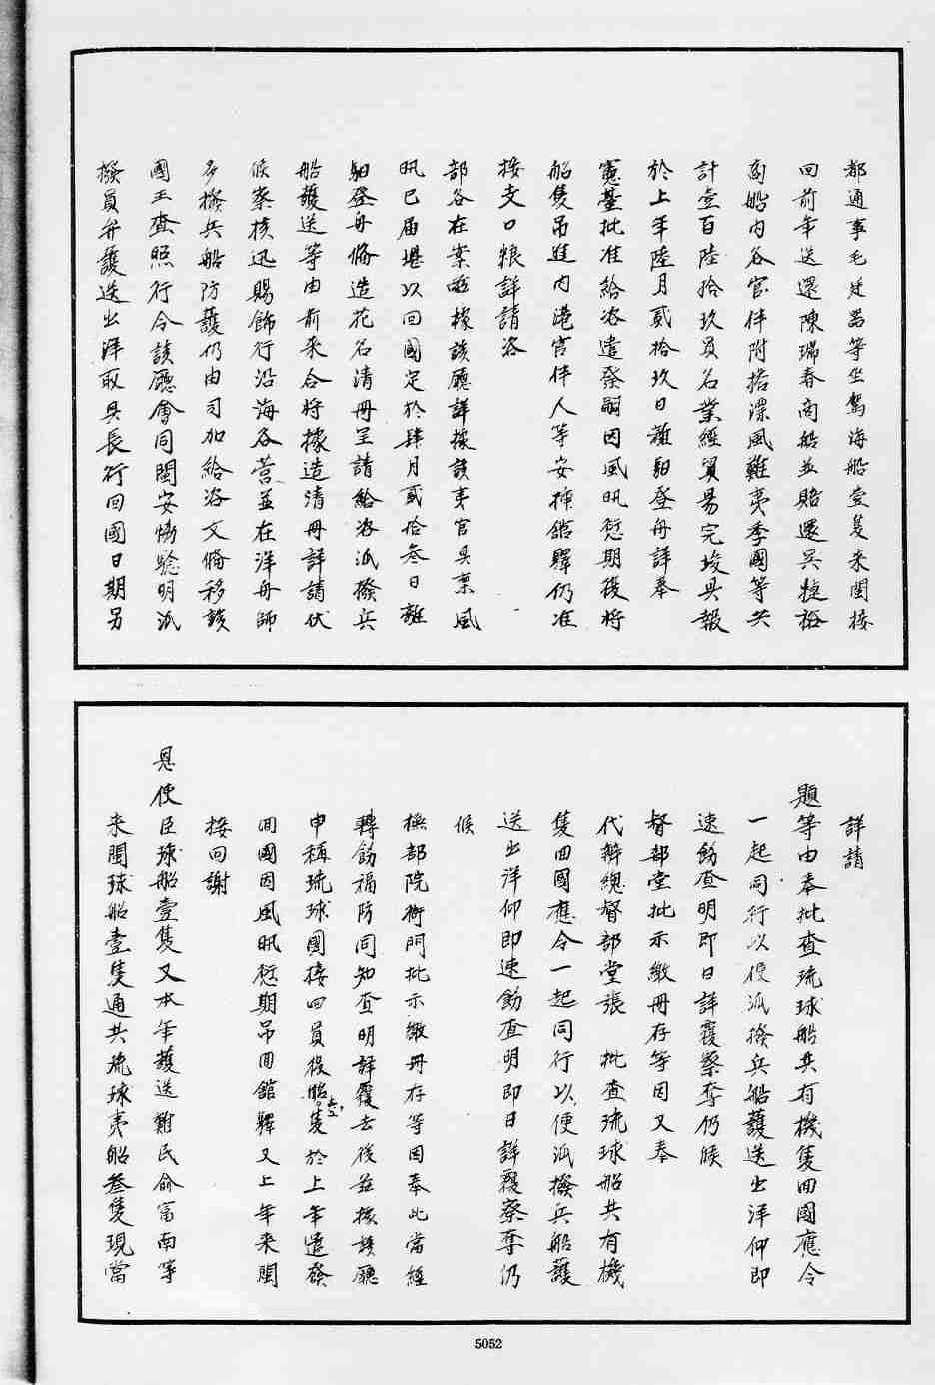 都通事毛廷器等坐駕海船壹隻来閩接
回前年送還陳瑞春商船並賠還吳捷裕
商船内各官伴附搭漂風難夷季國等共
計壹百陸拾玖員名業經貿易完竣具報
於上年陸月貳拾玖日離䑸登舟詳奉
憲臺批准給咨遣發嗣因風汛愆期復將
船隻吊進内港官伴人等安揷舘驛仍准
接支口粮詳請咨
部各在案茲據該廳詳據該夷官具禀風
汛已届堪以回國定於肆月貳拾叁日離
䑸登舟俻造花名清冊呈請給咨派撥兵
船護送等由前来合將據造清冊詳請伏
候察核迅賜飾行沿海各营並在洋舟師
多撥兵船防護仍由司加給咨文俻移該
國王查照行令該廳會同閩安協驗明派
撥員弁護送出洋取具長行回國日期另
詳請
題等由奉批查琉球船共有機隻回國應令
一起同行以便派撥兵船護送出洋仰即
速飭查明即日詳覆察奪仍候
督部堂批示繳冊存等因又奉
代辦總督部堂張 批查琉球船共有機
隻回國應令一起同行以便派撥兵船護
送出洋仰即速飭查明即日詳覆察奪仍
候
撫部院衙門批示繳冊存等因奉此當經
轉飭福防同知查明詳覆去後茲據該廳
申稱琉球國接回員役船壹隻於上年遣發
回國因風汛愆期吊回舘驛又上年来閩
接回謝
恩使臣球船壹隻又本年護送難民俞富南等
来閩球船壹隻通共琉球夷船叁隻現當
5052